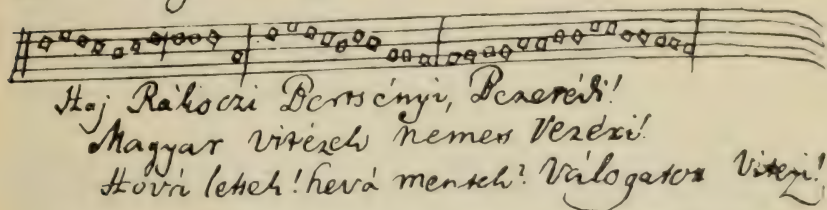 Haj Rákoczi Bertsényi, Bezerédi!
Magyar vitézek nemes Vezéri!
Hová lettek! hová mentek? Válogatot Vitezi!